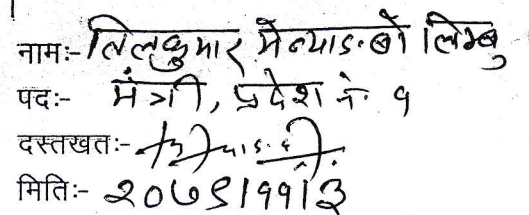 नामः- तिलकुमार मेन्याङ्बो लिम्बु
पदः- मंत्री, प्रदेश नं. १
दस्तखतः-
मितिः- २०७९।११।३